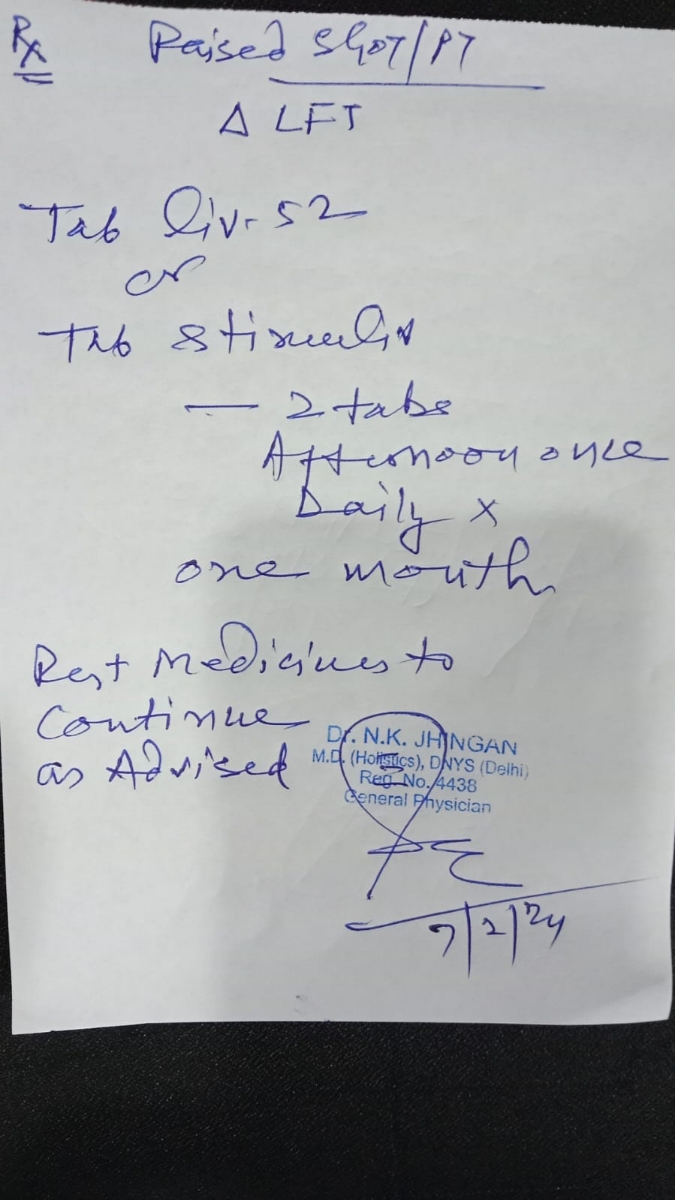 Rx Raised SGOT/PT
Δ LFT
Tab Liv-52
or
Tab Stimuliv
— 2 tabs
Afternoon once
Daily x
one month
Rest Medicines to
Continue
as Advised
Dr. N.K. JHINGAN
M.D. (Holistics), DNYS (Delhi)
Reg. No. 4438
General Physician
7/2/24